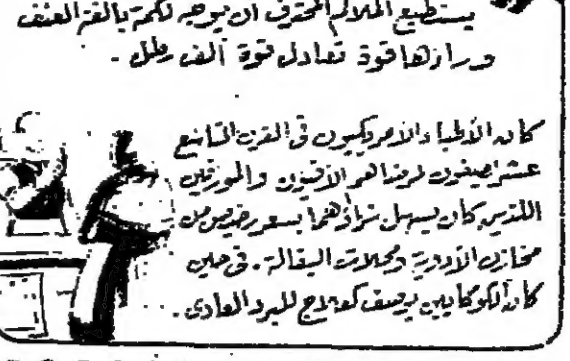 يستطيع الملاكم المحترف ان يوجه لكمة بالغة العنف
وراءها قوة تعادل قوة ألف رطل .
كان الأطباء الأمريكيون في القرن التاسع
عشر يصفون لمرضاهم الأفيون والمورفين
اللذين كان يسهل شراؤهما بسعر رخيص من
مخازن الأدوية ومحلات البقالة . في حين
كان الكوكايين يوصف كعلاج للبرد العادي .